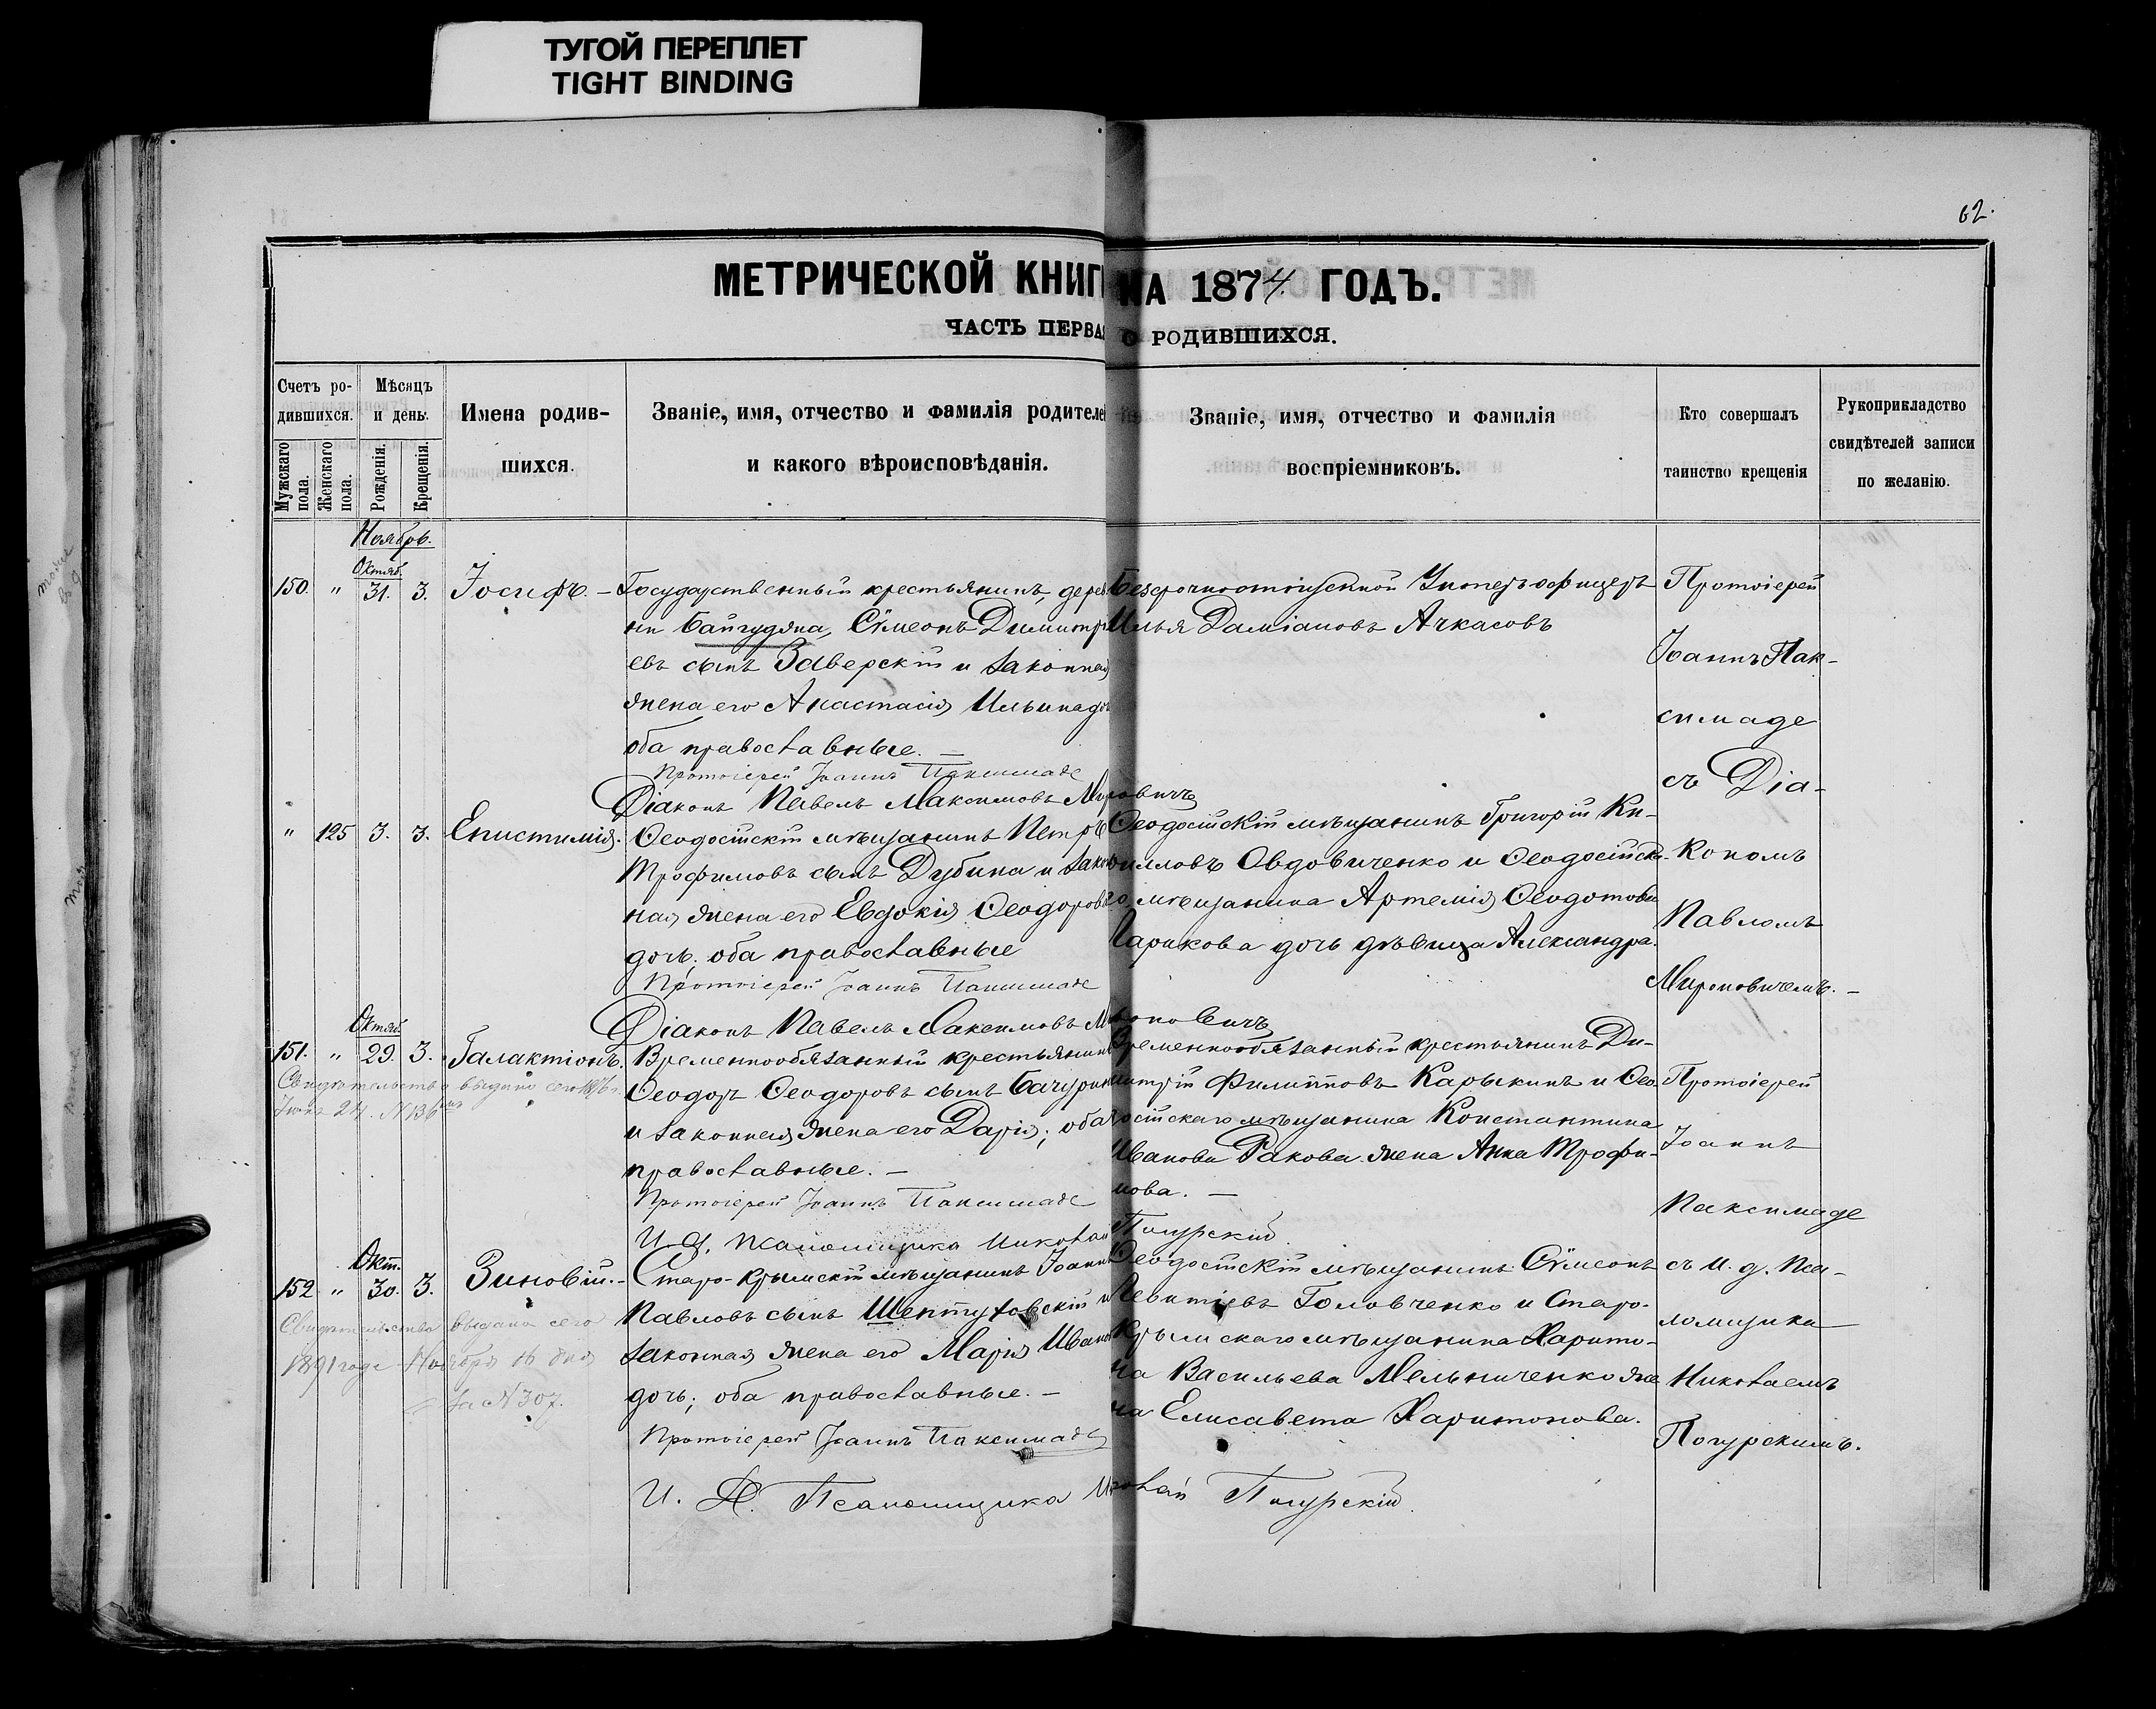 ТУГОЙ ПЕРЕПЛЕТ
TIGHT BINDING
62.
МЕТРИЧЕСКОЙ КНИГ НА 1874 ГОДЪ.
ЧАСТЬ ПЕРВАЯ О РОДИВШИХСЯ.
Счетъ ро-
дившихся.
Мужскаго пола.
Женскаго пола.
Мѣсяцъ
и день.
Рожденія.
Крещенія.
Имена родив-
шихся.
Званіе, имя, отчество и фамилія родителей
и какого вѣроисповѣданія.
Званіе, имя, отчество и фамилія
воспріемниковъ.
Кто совершалъ
таинство крещенія
Рукоприкладство
свидѣтелей записи
по желанію.
Ноябрь.
Октяб.
150. " 31. 3. Іосифъ. –
Государственный крестьянинъ, дерев
ни Байгуджа, Сѵмеонъ Димитрі
евъ сынъ Заверскій и законная
жена его Анастасія Ильина до
оба православные. –
Протоіерей Іоаннъ Паксимаде
Діаконъ Павелъ Максимовъ Мироновичъ
Безсрочноотпускной Унтеръ офицеръ
Илья Даміановъ Ачкасовъ
Протоіерей
Іоаннъ Пак-
симаде
съ Діа-
кономъ
Павломъ
Мироновичемъ. –
" 125 3. 3. Епистимія.
Ѳеодосійскій мѣщанинъ Петръ
Трофимовъ сынъ Дубина и закон
ная жена его Евдокія Ѳеодорова
дочь; оба православные
Протоіерей Іоаннъ Паксимаде
Діаконъ Павелъ Максимовъ Мироновичъ
Ѳеодосійскій мѣщанинъ Григорій Ки-
рилловъ Овдовиченко и Ѳеодосійска-
го мѣщанина Артемія Ѳеодотова
Ларикова дочь дѣвица Александра.
Октяб.
151. " 29. 3. Галактіонъ.
Свидѣтельство выдано сего 1876 г.
Іюня 24. N 136
Временнообязанный крестьянинъ
Ѳеодоръ Ѳеодоровъ сынъ Бачурин
и законная жена его Дарія; оба
православные. –
Протоіерей Іоаннъ Паксимаде
И. д. псаломщика Николай Погурскій
Временнообязанный крестьянинъ Ди-
митрій Филипповъ Карыкинъ и Ѳео-
досійскаго мѣщанина Константина
Иванова Ракова жена Анна Трофи-
мова. –
Протоіерей
Іоаннъ
Паксимаде
съ и. д. Пса-
ломщика
Николаемъ
Погурскимъ.
Окт.
152 " 30. 3. Зиновій. –
Свидѣтельство выдано сего
1891 года Ноября 16 дня
за N 307.
Старо-Крымскій мѣщанинъ Іоаннъ
Павловъ сынъ Шептуховскій и
законная жена его Марія Иванов
дочь; оба православные. –
Протоіерей Іоаннъ Паксимаде
И. Д. Псаломщика Николай Погурскій.
Ѳеодосійскій мѣщанинъ Сѵмеонъ
Леонтіевъ Головченко и Старо-
Крымскаго мѣщанина Харито-
на Васильева Мельниченко же
на Елисавета Харитонова.